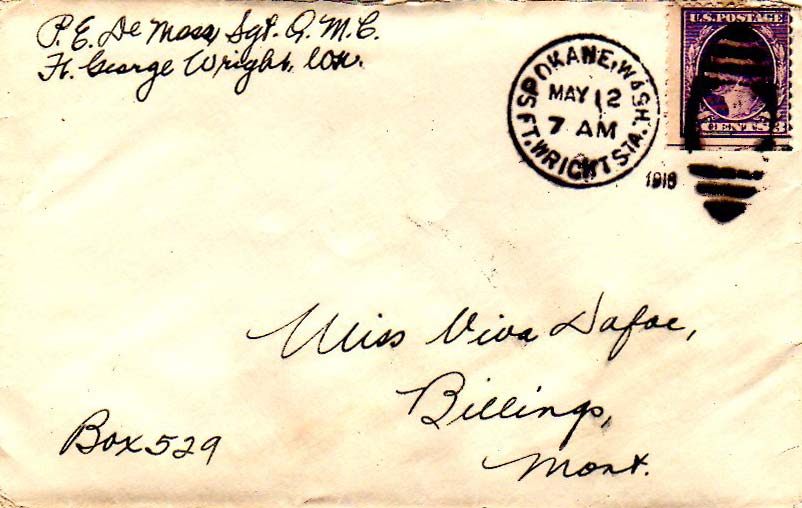 P. E. De Moss, Sgt. Q. M. C.
Ft. George Wright, Wn.
SPOKANE, WASH.
MAY 12
7 AM
FT. WRIGHT STA.
1918
U.S. POSTAGE
CENTS 3
Miss Viva Dafoe,
Billings,
Mont.
Box 529